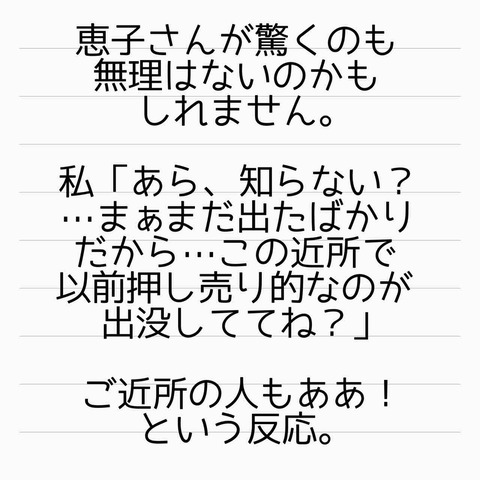 恵子さんが驚くのも
無理はないのかも
しれません。
私「あら、知らない？
…まぁまだ出たばかり
だから…この近所で
以前押し売り的なのが
出没しててね？」
ご近所の人もああ！
という反応。